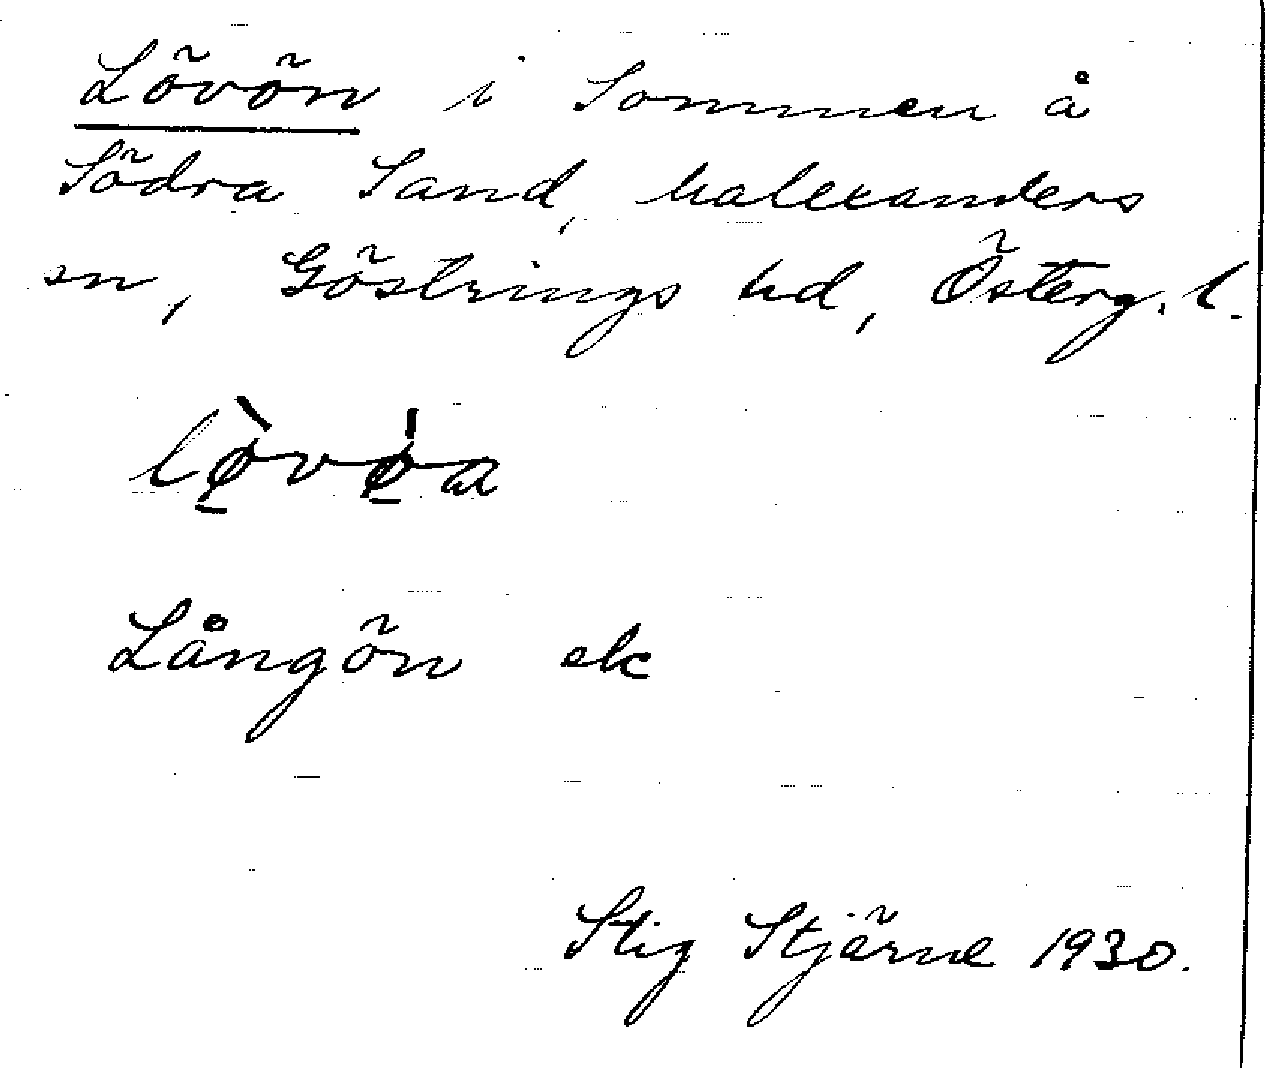 Lövön i Sommen å
Södra Sand, Malexanders
sn, Göstrings hd, Österg. l.
lø̀vø̍a
Långön ek
Stig Stjärne 1930.